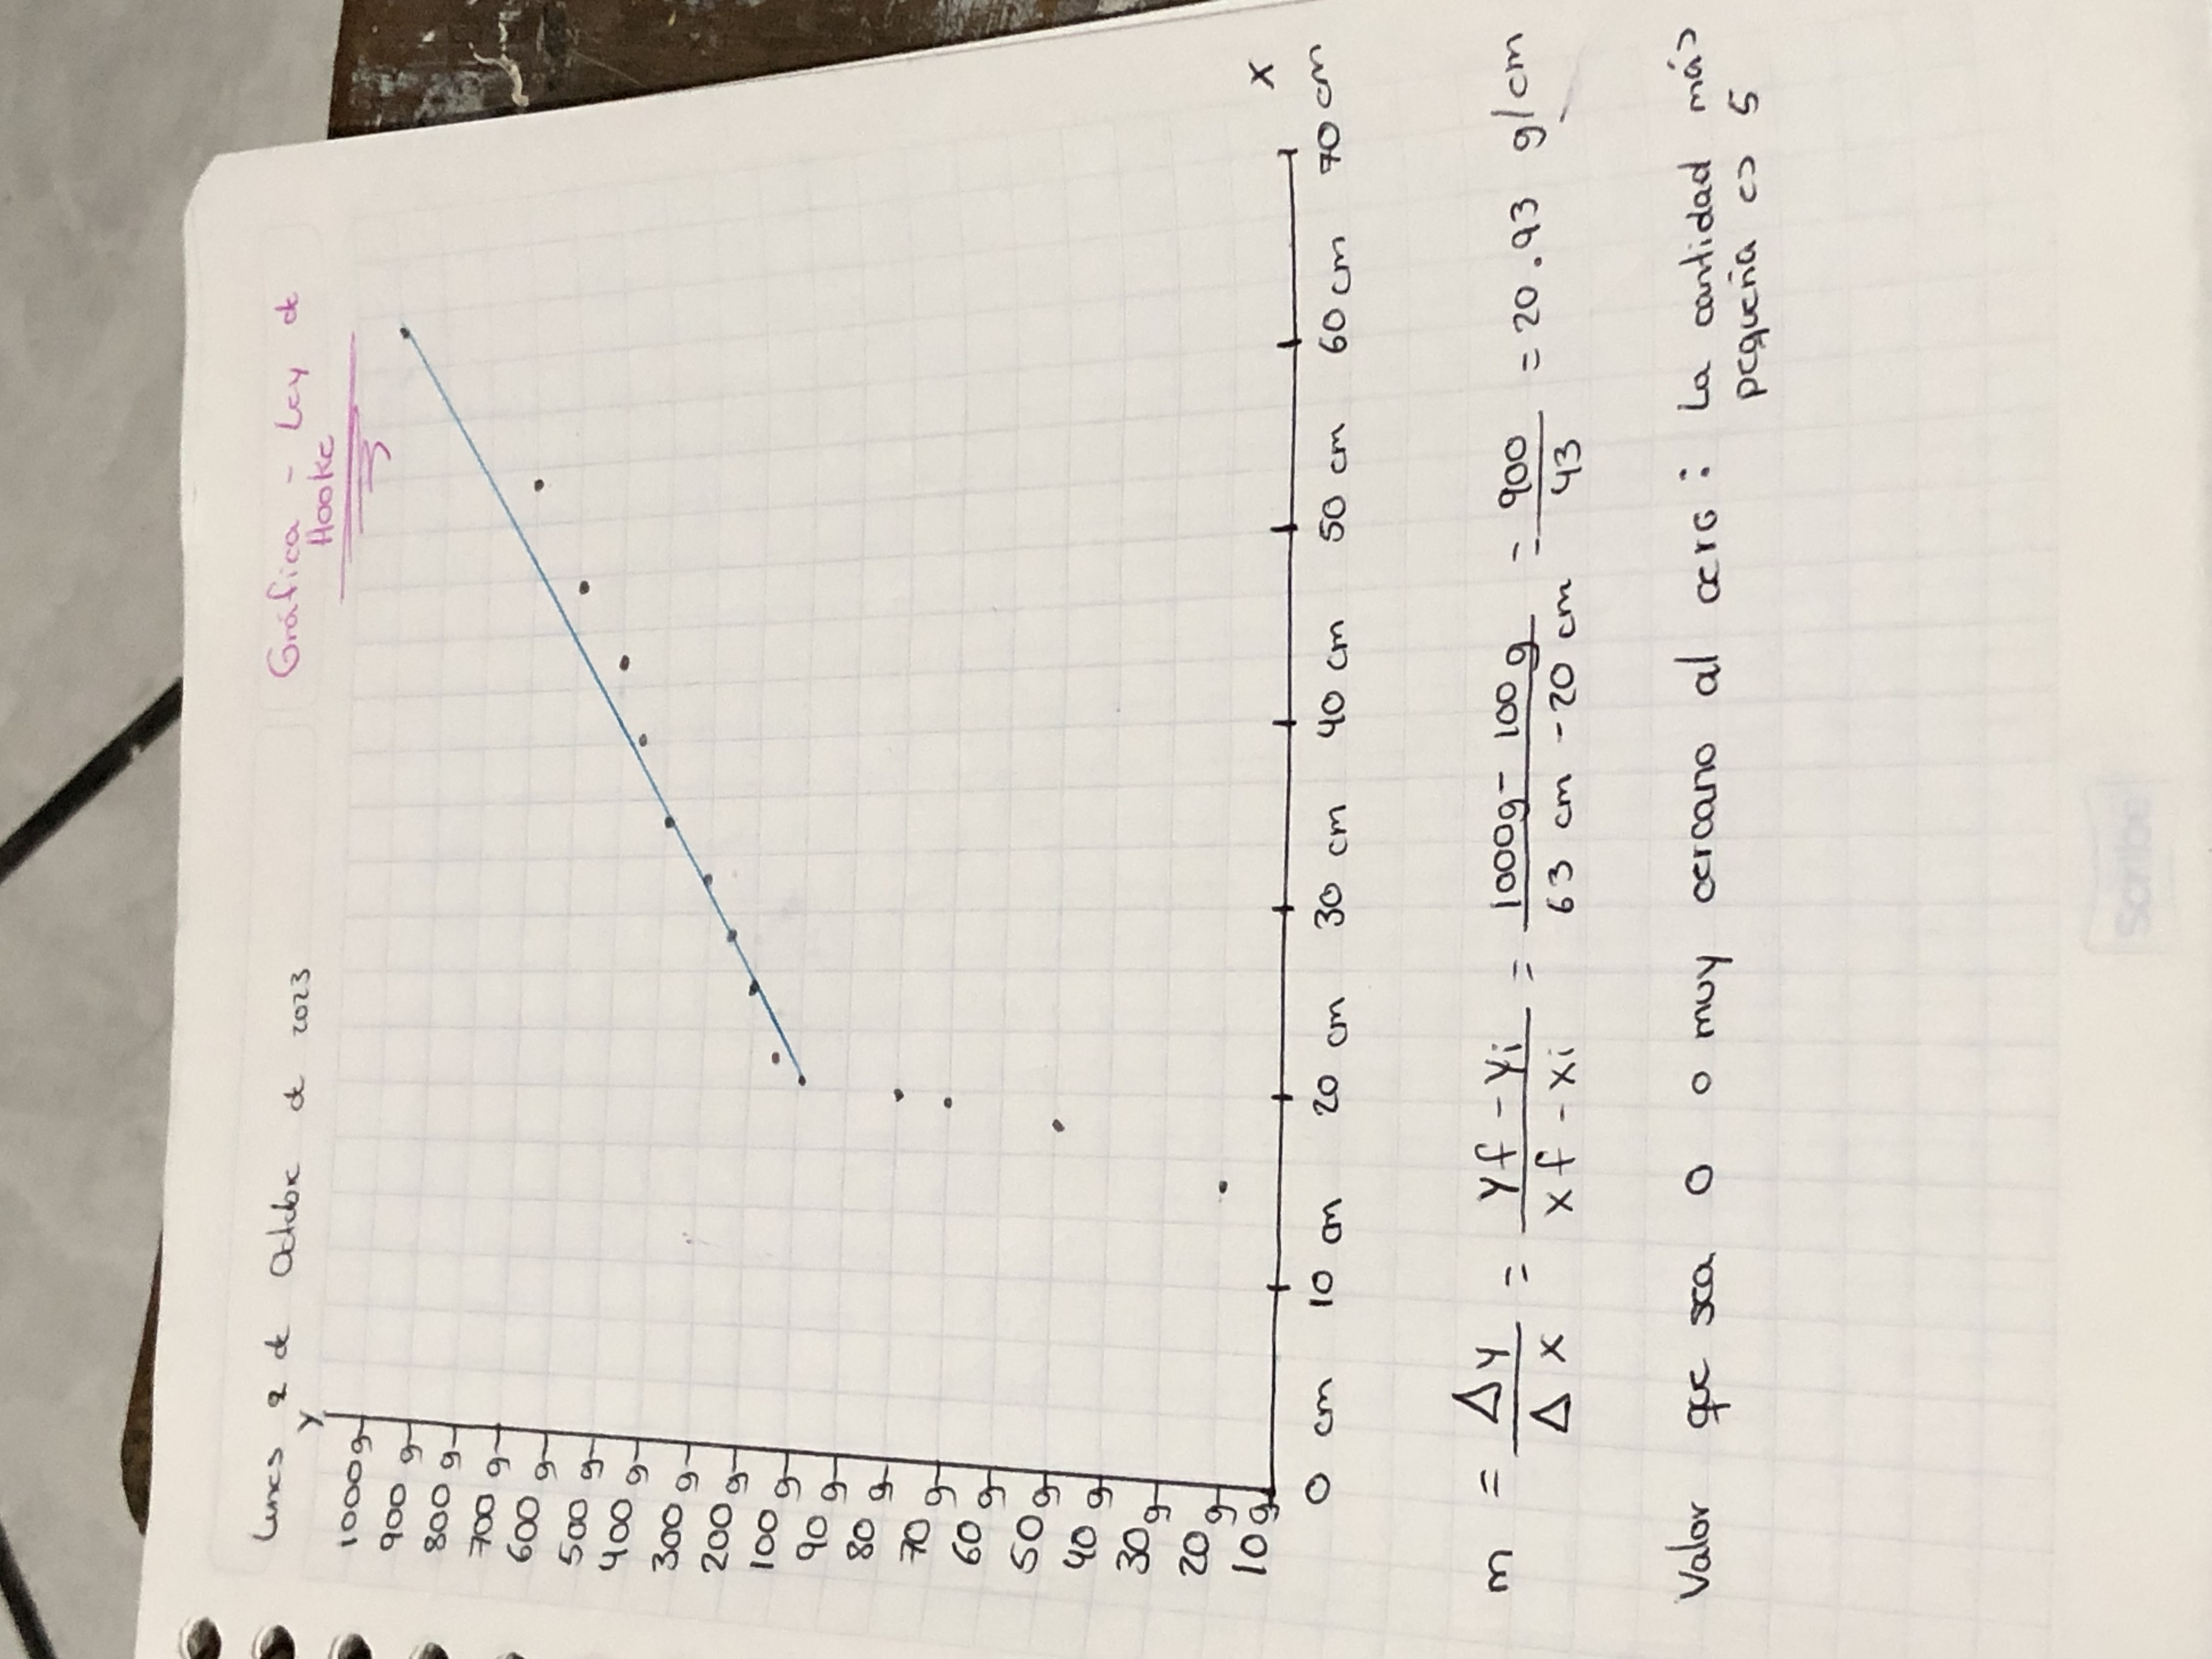 Lunes 2 de Octubre de 2023
Gráfica - Ley de
Hooke
y
1000g
900 g
800 g
700 g
600 g
500 g
400 g
300 g
200 g
100 g
90 g
80 g
70 g
60 g
50 g
40 g
30 g
20 g
10 g
x
0 cm 10 cm 20 cm 30 cm 40 cm 50 cm 60 cm 70 cm
m = Δy / Δx = yf - yi / xf - xi = 1000g - 100g / 63 cm - 20 cm = 900 / 43 = 20.93 g/cm
Valor que sea 0 o muy cercano al cero: La cantidad más
pequeña es 5
Scribe